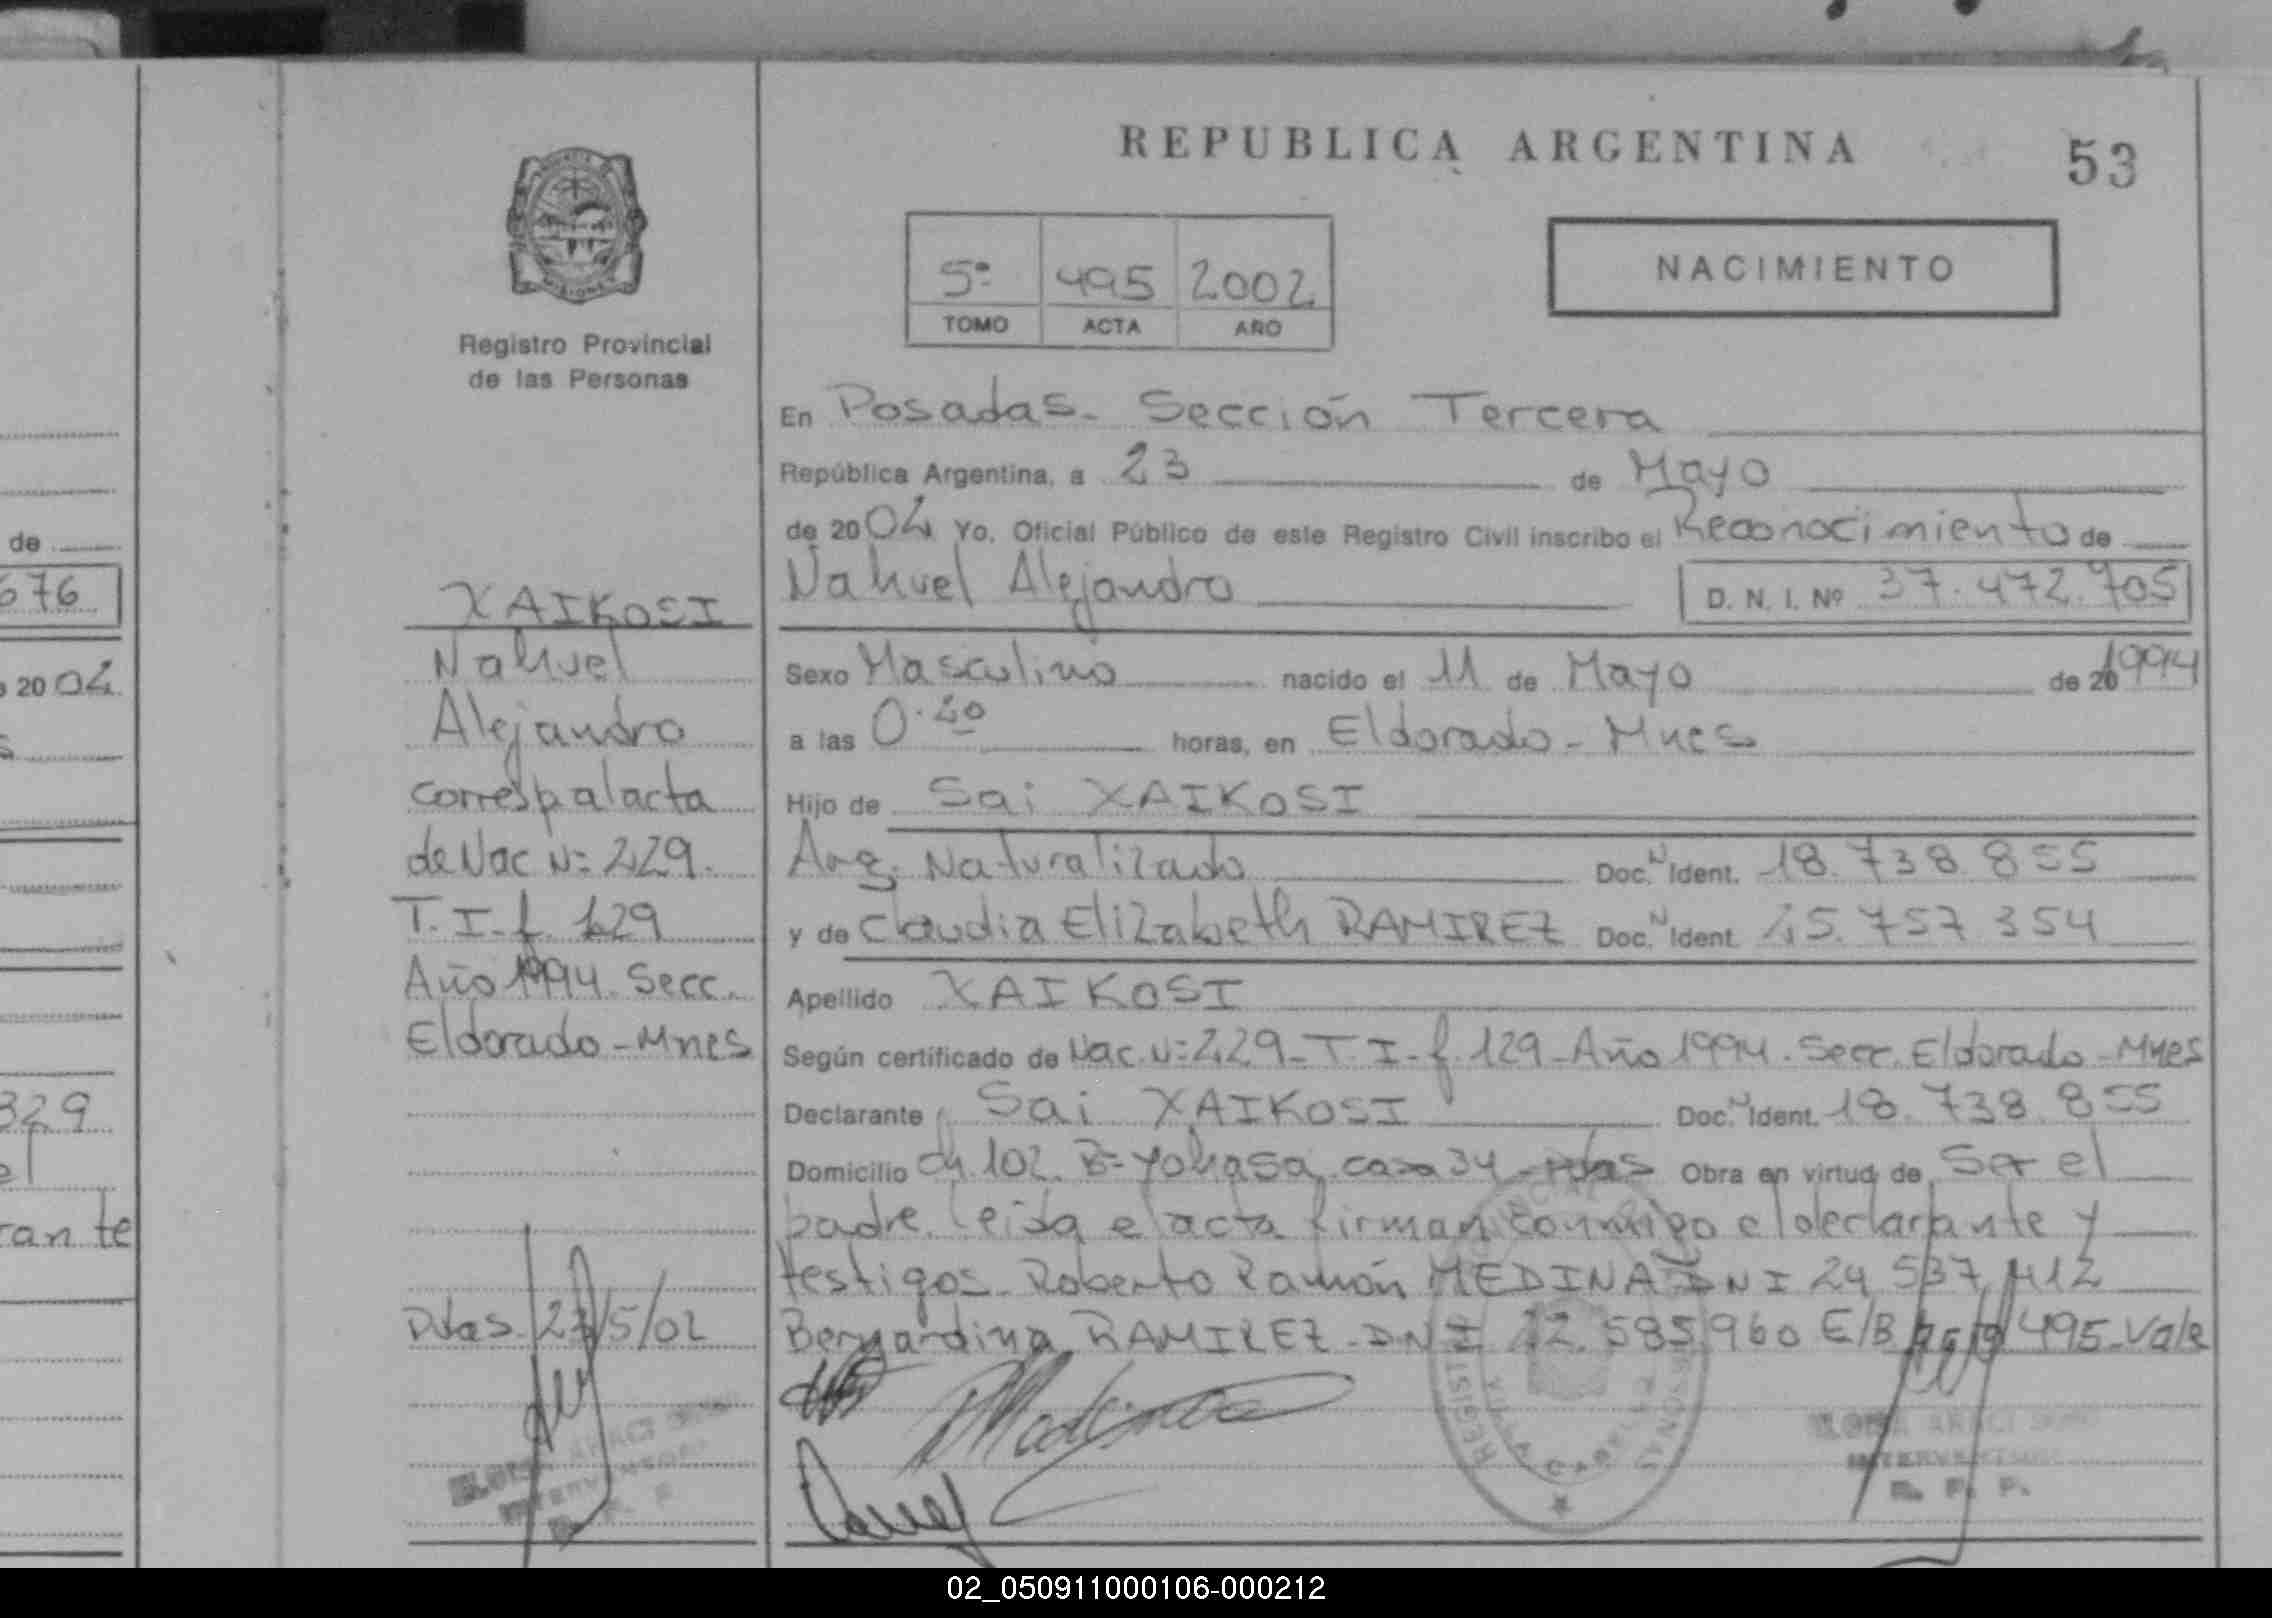 REPUBLICA ARGENTINA
53
5º 495 2002
TOMO ACTA AÑO
NACIMIENTO
Registro Provincial
de las Personas
En Posadas - Sección Tercera
República Argentina, a 23 de Mayo
de 2002 Yo, Oficial Público de este Registro Civil inscribo el Reconocimiento de
Nahuel Alejandro D. N. I. Nº 37.472.705
Sexo Masculino nacido el 11 de Mayo de 20 1994
a las 0.20 horas, en Eldorado - Mnes
Hijo de Sai XAIKOSI
Arg. Naturalizado Doc. N Ident. 18.738.855
y de Claudia Elizabeth RAMIREZ Doc. N Ident. 25.757 354
Apellido XAIKOSI
Según certificado de Nac. Nº 229 - T. I - f. 129 - Año 1994. Secc. Eldorado - Mnes
Declarante Sai XAIKOSI Doc. N Ident. 18.738.855
Domicilio Ch. 102. Bº Yohasa casa 34 - Pdas Obra en virtud de Ser el
padre. Leida el acta firman conmigo el declarante y
testigos - Roberto Ramón MEDINA DNI 24 537 412
Bernardina RAMIREZ - DNI 12.585.960 E/B 495 - Vale
XAIKOSI
Nahuel
Alejandro
corresp al acta
de Nac Nº 229.
T. I - f. 129
Año 1994. Secc.
Eldorado - Mnes
Pdas. 23/5/02
ARACI
INTERVENTORA
R. P. P.
ARACI
INTERVENTORA
R. P. P.
VILLA CABELLO
de
676
20 02
329
el
rante
02_050911000106-000212